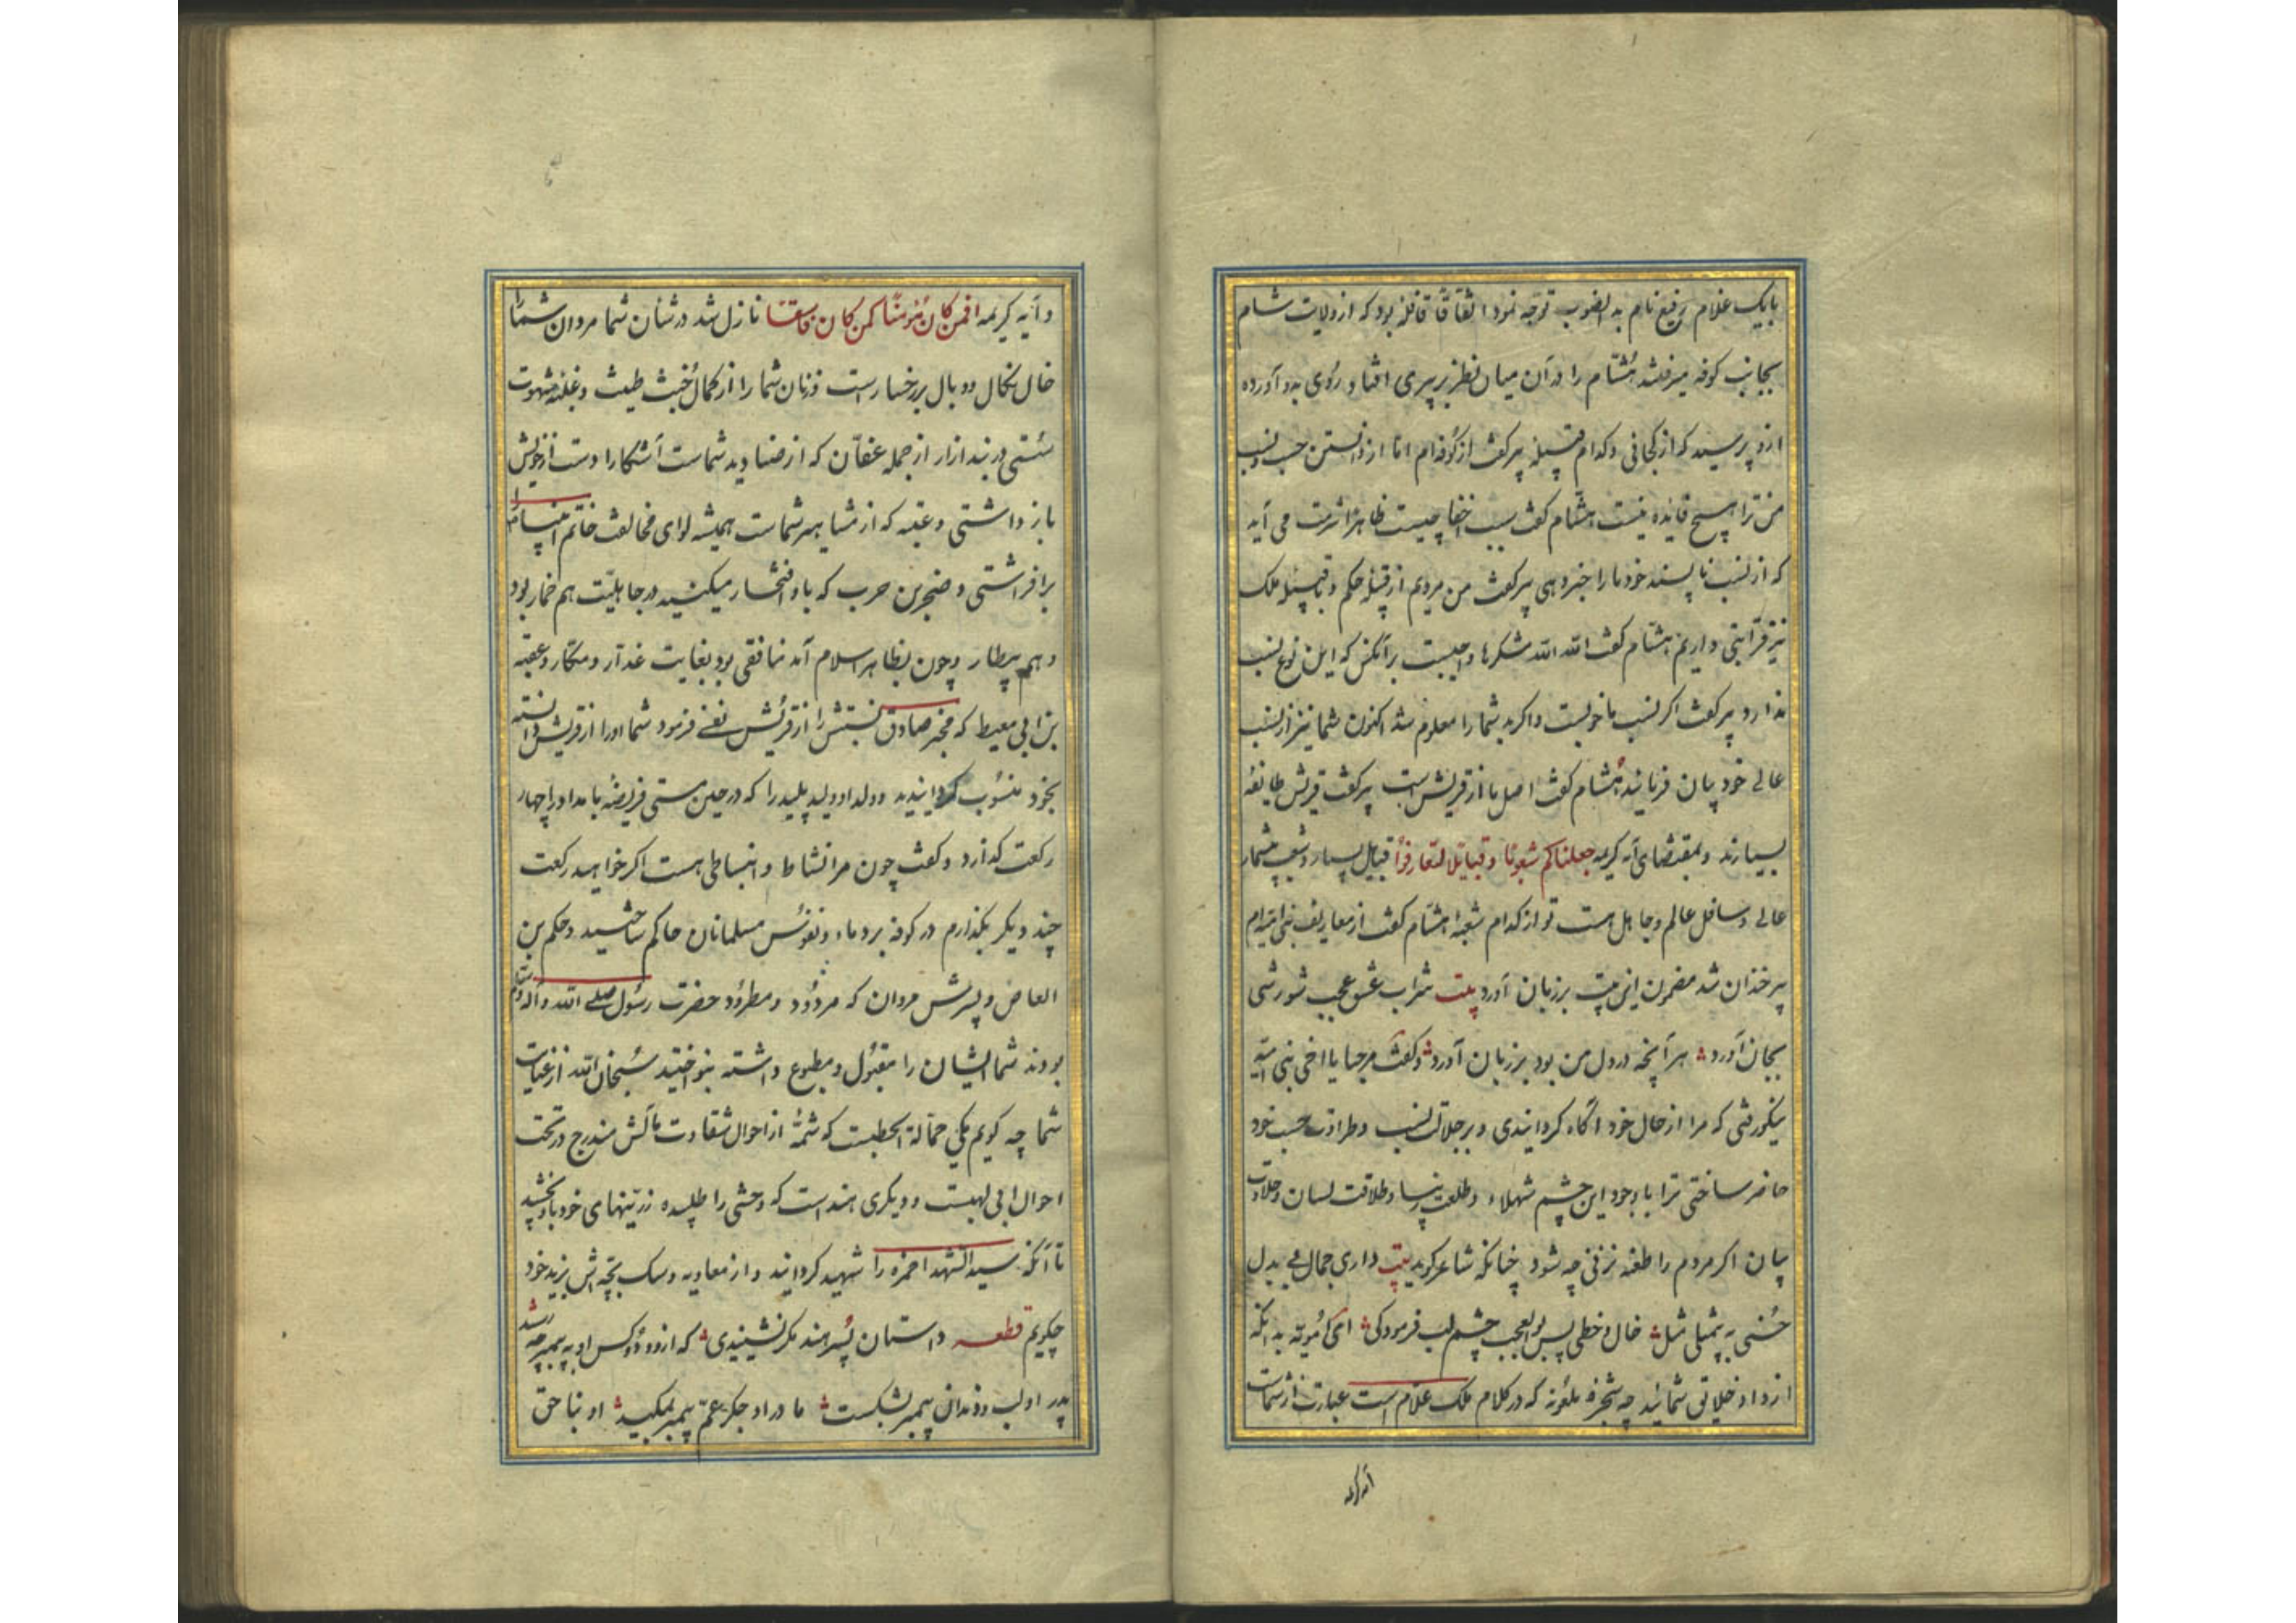 بایک غلام رفیع نام بدانصوب توجه نمود اتفاقاً قافله بود که از ولایت شام
بجانب کوفه میرفتند هشام را در آن میان نظر بر پیری افتاد روی بدو آورده
ازو پرسید که از کجائی و کدام قبیله پیر گفت از کوفه‌ام اما از دانستن حسب و نسب
من ترا هیچ فایده نیست هشام گفت سبب اخفا چیست ظاهرا شرمت می آید
که از نسب ناپسند خود ما را خبر دهی پیر گفت من مردیم از قبیله حکم و قبیله ملک
نیز قرابتی داریم هشام گفت الله الله شکرها واجبست بر آنکس که این نوع نسب
ندارد پیر گفت اگر نسب ما خوبست و اگر بد شما را معلوم شد اکنون شما نیز از نسب
عالی خود بیان فرمائید هشام گفت اصل ما از قریش است پیر گفت قریش طایفهٔ
بسیارند و بمقتضای آیه کریمه جعلناکم شعوبا و قبایل لتعارفوا قبایل بسیار و شعب بیشمار
عالی و سافل عالم و جاهل هست تو از کدام شعبهٔ هشام گفت از معاریف بنی امیه‌ام
پیر خندان شد مضمون این بیت بر زبان آورد بیت شراب عشق عجب شورشی
بجان آورد هر آنچه در دل من بود بر زبان آورد و گفت مرحبا یا اخی بنی امیه
نیکو رفتی که مرا از حال خود آگاه گردانیدی و بر جلالت نسب و طراوت حسب خود
حاضر ساختی ترا با وجود این چشم شهلاء و طلعت زیبا و طلاقت لسان و حلاوت
بیان اگر مردم را طعنه نزنی چه شود چنانکه شاعر گوید بیت داری جمال بی بدل
حسنی به بیمثلی مثل خال و خطی بس بوالعجب چشم لب فرمودکی امی اُمویّه بدانکه
ازداد خلایق شمائید چه شجره ملعونه که در کلام ملک علام است عبارت از شماست
آیه کریمه
و آیه کریمه افمن کان مؤمنا کمن کان فاسقا نازل شد در شأن شما مردان شما را
خال نکال و وبال بر رخسار است و زنان شما را از کمال خبث طینت و غلبه شهوت
سستی در بند ازار از جمله عفان که از صنادید شماست آشکارا دست از خویش
باز داشتی و عتبه که از مشاهیر شماست همیشه لوای مخالفت خاتم انبیا را
برافراشتی و صخر بن حرب که باو افتخار میکنید در جاهلیت هم خمار بود
و هم بیطار و چون بظاهر اسلام آمد منافقی بود بغایت غدار و مکار و عقبه
بن ابی معیط که مخبر صادق نسبتش را از قریش نفی فرمود شما او را از قریش دانسته
بخود منسوب گردانیدید و ولد او ولید پلید را که در حین مستی فریضه بامداد را چهار
رکعت گذارد و گفت چون مرا نشاط و انبساطی هست اگر خواهید رکعت
چند دیگر بگذارم در کوفه بر دماء و نفوس مسلمانان حاکم ساختید و حکم بن
العاص و پسرش مروان که مردود و مطرود حضرت رسول صلی الله و آله وسلم
بودند شما ایشان را مقبول و مطبوع داشته بنواختید سبحان الله از
شما چه گویم یکی حمالة الحطبست که شمهٔ از احوال شقاوت مآلش مندرج در تحت
احوال ابی لهبست و دیگری هند است که وحشی را طلبیده زرینهای خود باو بخشید
تا آنکه سید الشهدا حمزه را شهید گردانید و از معاویه و سگ بچه اش یزید خود
چگویم قطعه داستان پسر هند مگر نشنیدی که ازو و دو کس او به پیمبر چه رسید
پدر او لب و دندان پیمبر بشکست مادر او جگر عم پیمبر بمکید او بناحق